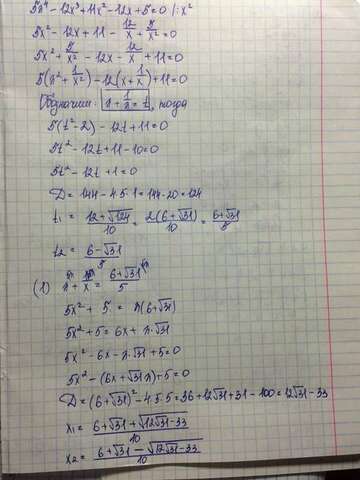 5x⁴ - 12x³ + 11x² - 12x + 5 = 0 /: x²
5x² - 12x + 11 - 12/x + 5/x² = 0
5x² + 5/x² - 12x - 12/x + 11 = 0
5(x² + 1/x²) - 12(x + 1/x) + 11 = 0
Обозначим x + 1/x = t, тогда
5(t² - 2) - 12t + 11 = 0
5t² - 12t + 11 - 10 = 0
5t² - 12t + 1 = 0
D = 144 - 4·5·1 = 144 - 20 = 124
t₁ = (12 + √124)/10 = 2(6 + √31)/10 = (6 + √31)/5
t₂ = (6 - √31)/5
(1) x + 1/x = (6 + √31)/5
5x² + 5 = x(6 + √31)
5x² + 5 = 6x + x·√31
5x² - 6x - x·√31 + 5 = 0
5x² - (6x + √31 x) + 5 = 0
D = (6 + √31)² - 4·5·5 = 36 + 12√31 + 31 - 100 = 12√31 - 33
x₁ = (6 + √31 + √(12√31 - 33))/10
x₂ = (6 + √31 - √(12√31 - 33))/10